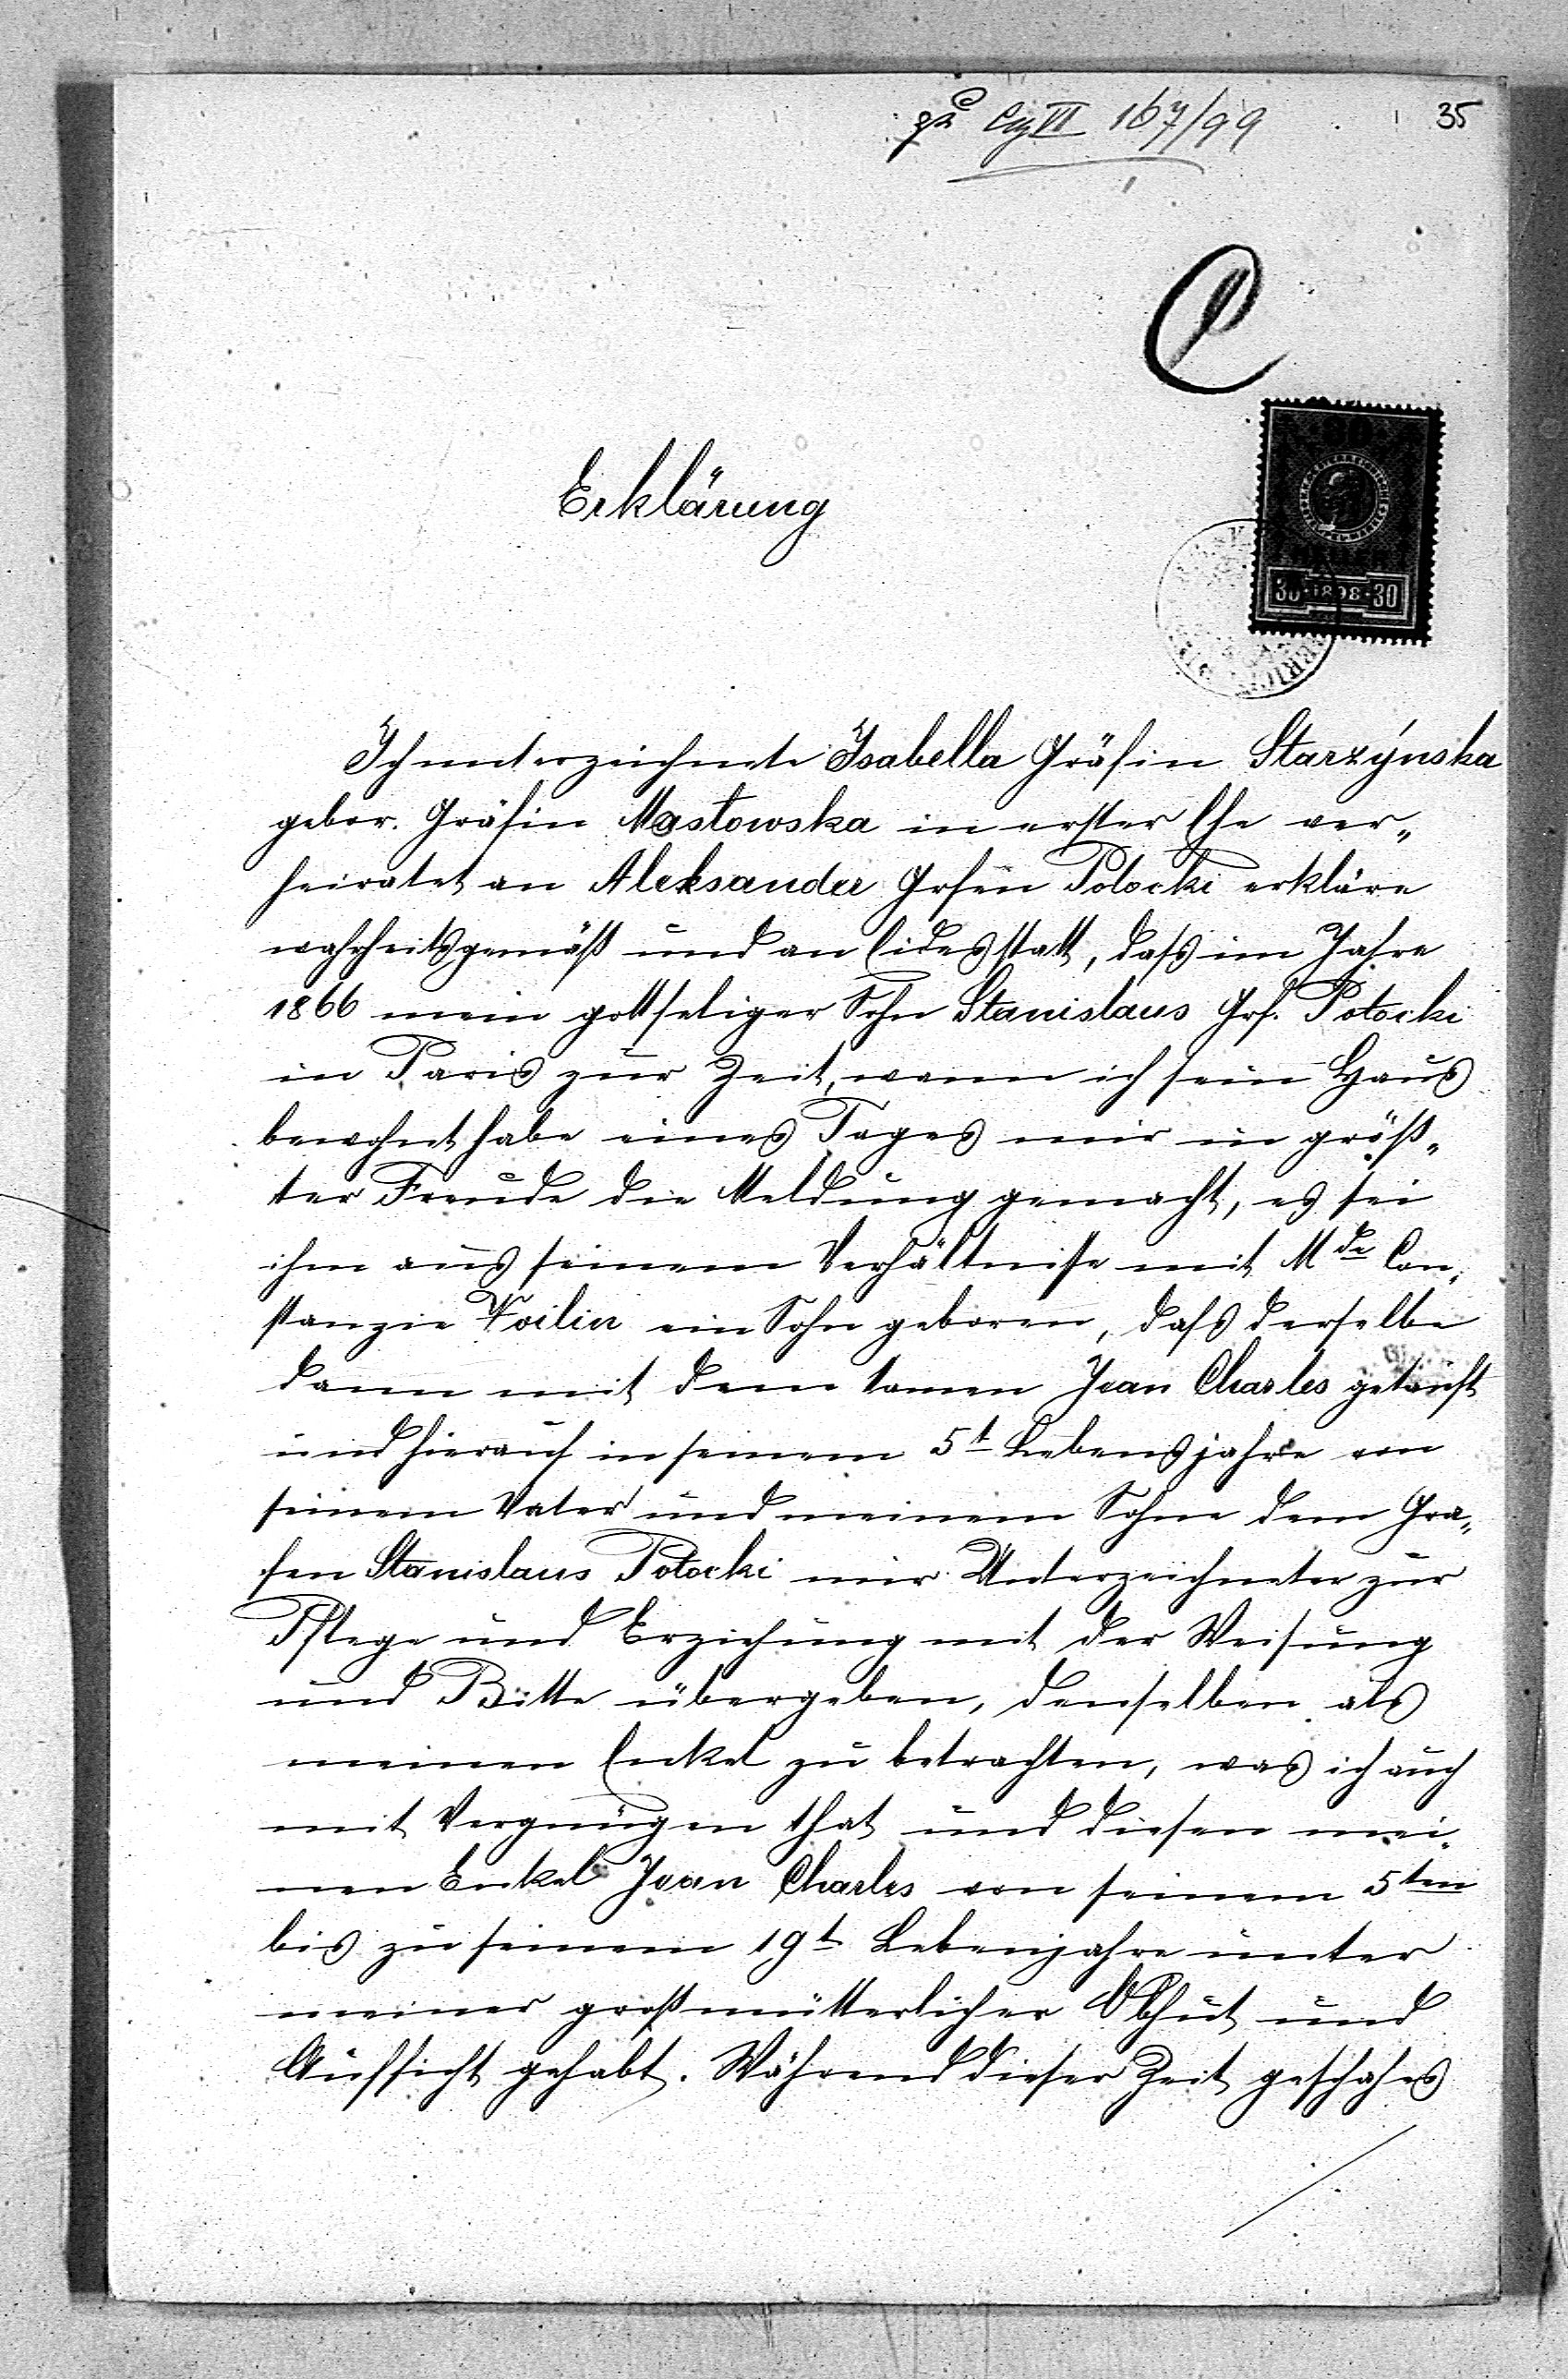 zu Cg VI 167/99
35
C
Erklärung
30 1898 30
Ich unterzeichnete Isabella Gräfin Starzýnska
gebor. Gräfin Mastowska in erster Ehe ver„
heiratet an Aleksander Grfen Potocki erkläre
wahrheitsgemäß und an Eidesstatt, daß im Jahre
1866 mein gottseliger Sohn Stanislaus Grf. Potocki
in Paris zur Zeit, wann ich sein Haus
bewohnt habe eines Tages mir in größ„
ter Freude die Meldung gemacht, es sei
ihm aus seinem Verhältnisse mit Mde Con„
stanzie Voilin ein Sohn geboren, daß derselbe
dann mit dem Namen Jean Charles getauft
und hierauf in seinem 5t Lebensjahre von
seinem Vater und meinem Sohne dem Gra„
fen Stanislaus Potocki mir Unterzeichneter zur
Pflege und Erziehung mit der Weisung
und Bitte übergeben, denselben als
meinen Enkel zu betrachten, was ich auch
mit Vergnügen that und diesen mei„
nen Enkel Jean Charles von seinem 5ten
bis zu seinem 19t Lebenjahre unter
meiner großmütterlicher Obhut und
Aufsicht gehabt. Während dieser Zeit geschah es